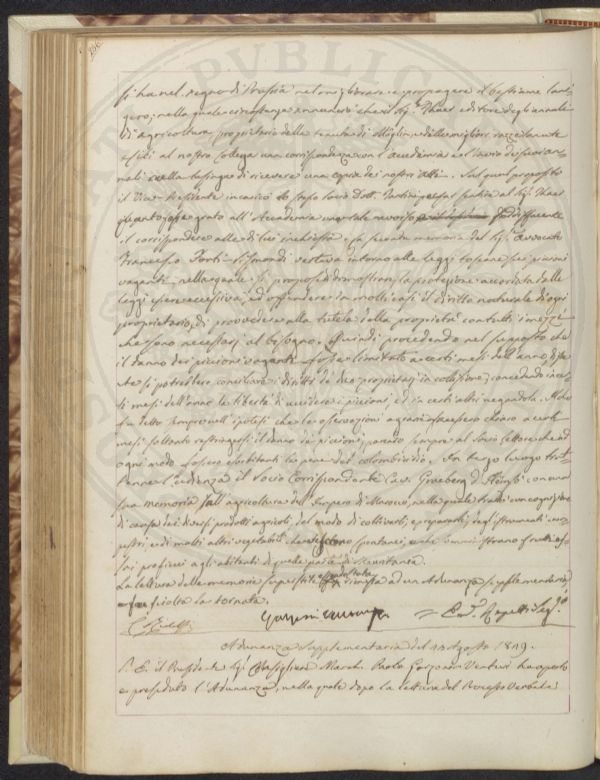 si ha nel regno di Prussia nel migliorare e propagare il bestiame lani-
gero; nella quale circostanza annunziò che il Sig. Thaer editore degli annali
di agricoltura proprietario della tenuta di Möglin e delle migliori razze lanute
esibì al nostro Collega una corrispondenza con l'Accademia e l'invio dei suoi an-
nali nella lusinga di ricevere una copia dei nostri Atti. Sul qual proposito
il Vice Presidente incaricò lo stesso Socio Dott. 
quanto fosse grato all'Accademia 
il corrispondere alle di lui inchieste. La seconda memoria del Sig. Avvocato
Francesco Forti-Sismondi versava intorno alle leggi toscane sui piccioni
vaganti, nella quale si propose di dimostrare la protezione accordata dalle
leggi essere eccessiva, ed offendere in molti casi il diritto naturale di ogni
proprietario, di provvedere alla tutela della proprietà con tutti i mezzi
che sono necessarj al bisogno. Quindi procedendo nel supposto che
il danno dei piccioni vaganti fosse limitato a certi mesi dell'anno disse
che si potrebbero conciliare i diritti de' due proprietarj in collisione, concedendo in cer-
ti mesi dell'anno la libertà di uccidere i piccioni, ed in certi altri negandola. 
fu detto sempre nell'ipotesi che le osservazioni agrarie facessero chiaro a certi
mesi soltanto restringersi il danno de' piccioni, parendo sempre al Socio lettore che ad
ogni modo fossero esorbitanti le pene del colombicidio. In terzo luogo trat-
tenne l'udienza il Socio Corrispondente Cav. Graeberg d'Hemsö con una
sua memoria sull'agricoltura dell'Impero di Marocco, nella quale trattò con cognizione
di causa dei diversi prodotti agricoli, del modo di coltivarli, e prepararli, degli istrumenti ru-
restri e di molti altri vegetabili che crescono spontanei, e che somministrano frutti as-
sai proficui agli abitanti di quella parte di Mauritania.
La lettura delle memorie superstiti essendo stata rimessa ad un'Adunanza supplementaria,
fu sciolta la tornata.
C. Ridolfi Garzoni Venturi E. Repetti Seg.
Adunanza Supplementaria del 13 Agosto 1829.
S. E. il Presidente Sig. Consigliere March. Paolo Garzoni Venturi ha aperto
e preseduto l'Adunanza, nella quale dopo la lettura del Processo Verbale